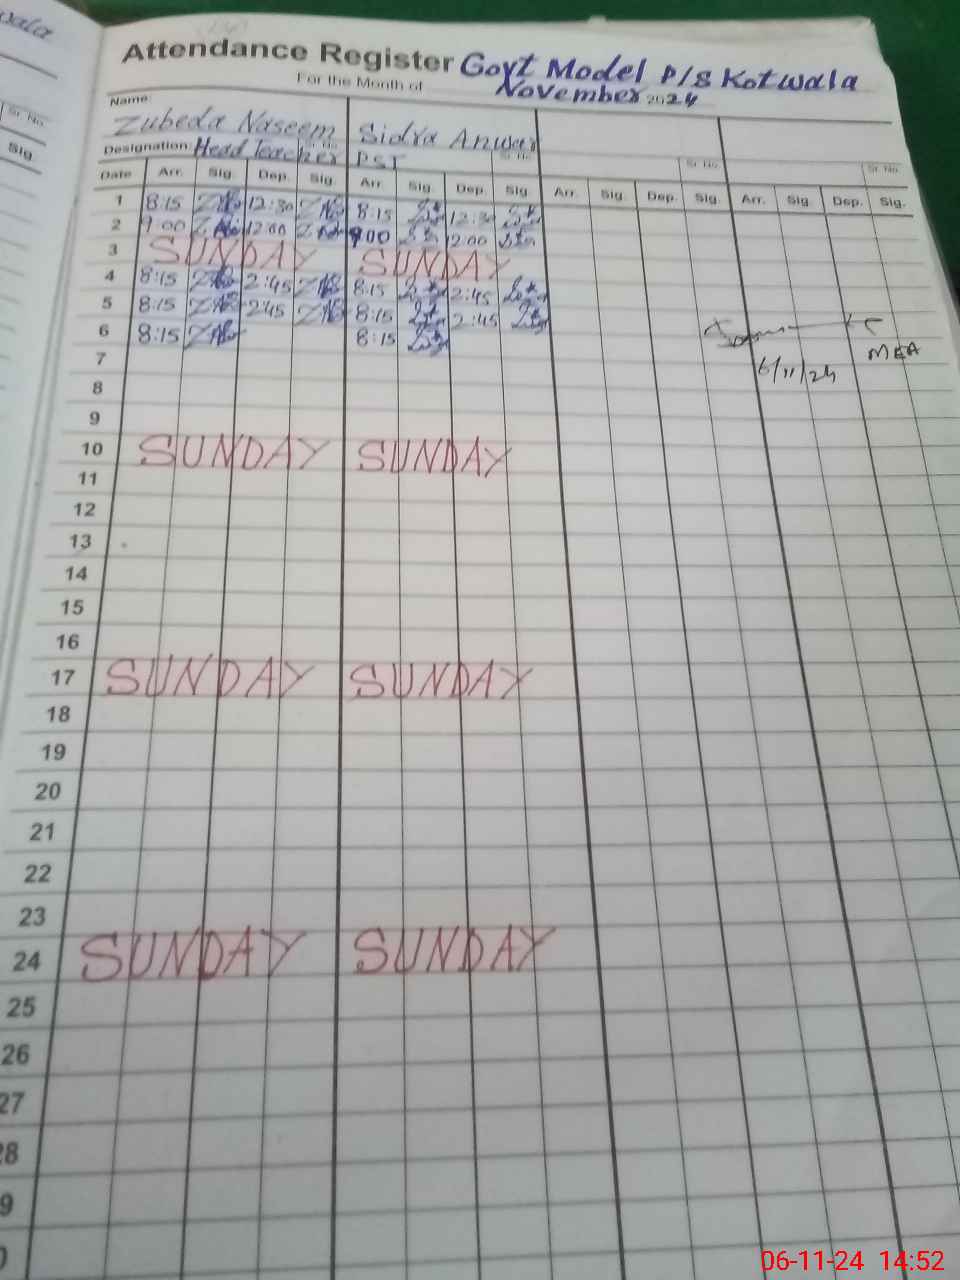 wala
Attendance Register Govt Model P/S Kotwala
For the Month of November 2024
Name:
Zubeda Naseem Sidra Anwar
Sr. No. Sr. No. Sr. No. Sr. No.
Designation: Head Teacher PST
Sig.
Date Arr. Sig. Dep. Sig. Arr. Sig. Dep. Sig. Arr. Sig. Dep. Sig. Arr. Sig. Dep. Sig.
1 8:15 12:30 8:15 12:30
2 9:00 12:00 9:00 12:00
3 SUNDAY SUNDAY
4 8:15 2:45 8:15 2:45
5 8:15 2:45 8:15 2:45
6 8:15 8:15
MEA
6/11/24
7
8
9
10 SUNDAY SUNDAY
11
12
13
14
15
16
17 SUNDAY SUNDAY
18
19
20
21
22
23
24 SUNDAY SUNDAY
25
26
27
28
9
0
06-11-24 14:52